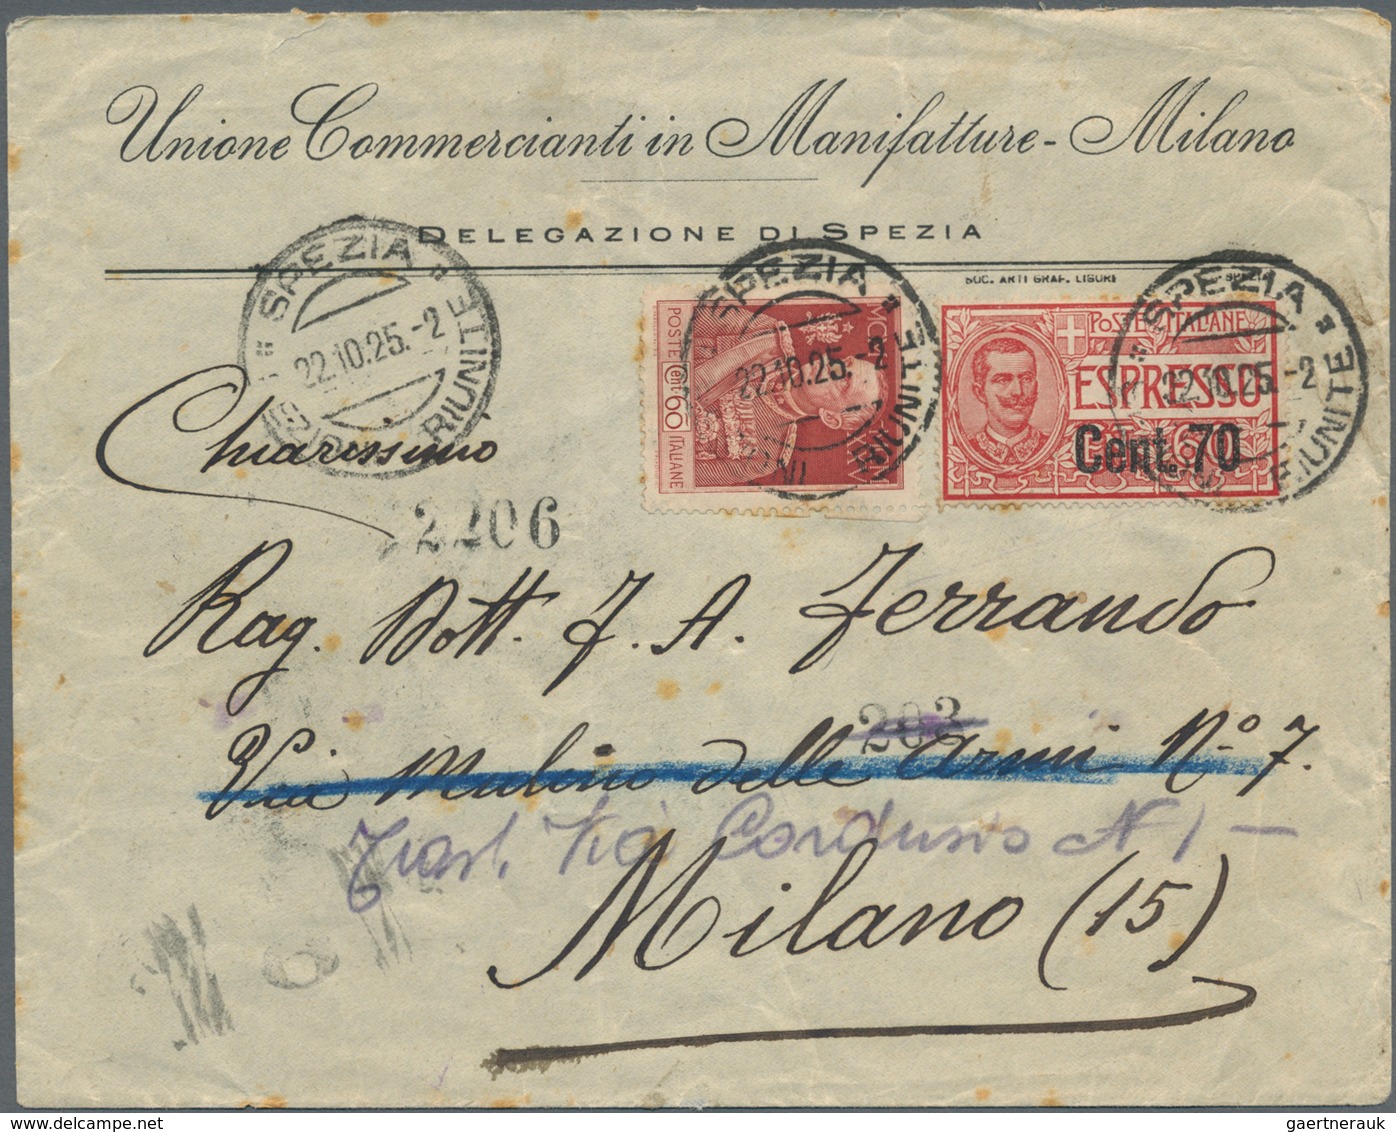 Unione Commercianti in Manifatture - Milano
DELEGAZIONE DI SPEZIA
SOC. ARTI GRAF. LIGURI - SPEZIA
SPEZIA
22.10.25.-2
RIUNITE
POSTE ITALIANE
Cent 60
SPEZIA
22.10.25.-2
RIUNITE
POSTE ITALIANE
ESPRESSO
Cent. 70
SPEZIA
22.10.25.-2
RIUNITE
Chiarissimo
2206
Rag. Dott. F. A. Ferrando
203
Via Molino delle Armi N.º 7.
Via Cordusio N 1 —
Milano (15)
gaertnerauk